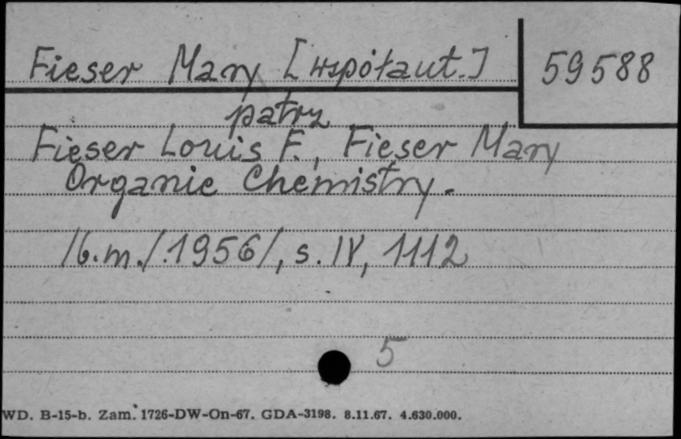 Fieser Mary [współaut.] 59588
patrz
Fieser Louis F., Fieser Mary
Organic Chemistry.
/b.m./.1956/, s. IV, 1112
5
WD. B-15-b. Zam. 1726-DW-On-67. GDA-3198. 8.11.67. 4.630.000.